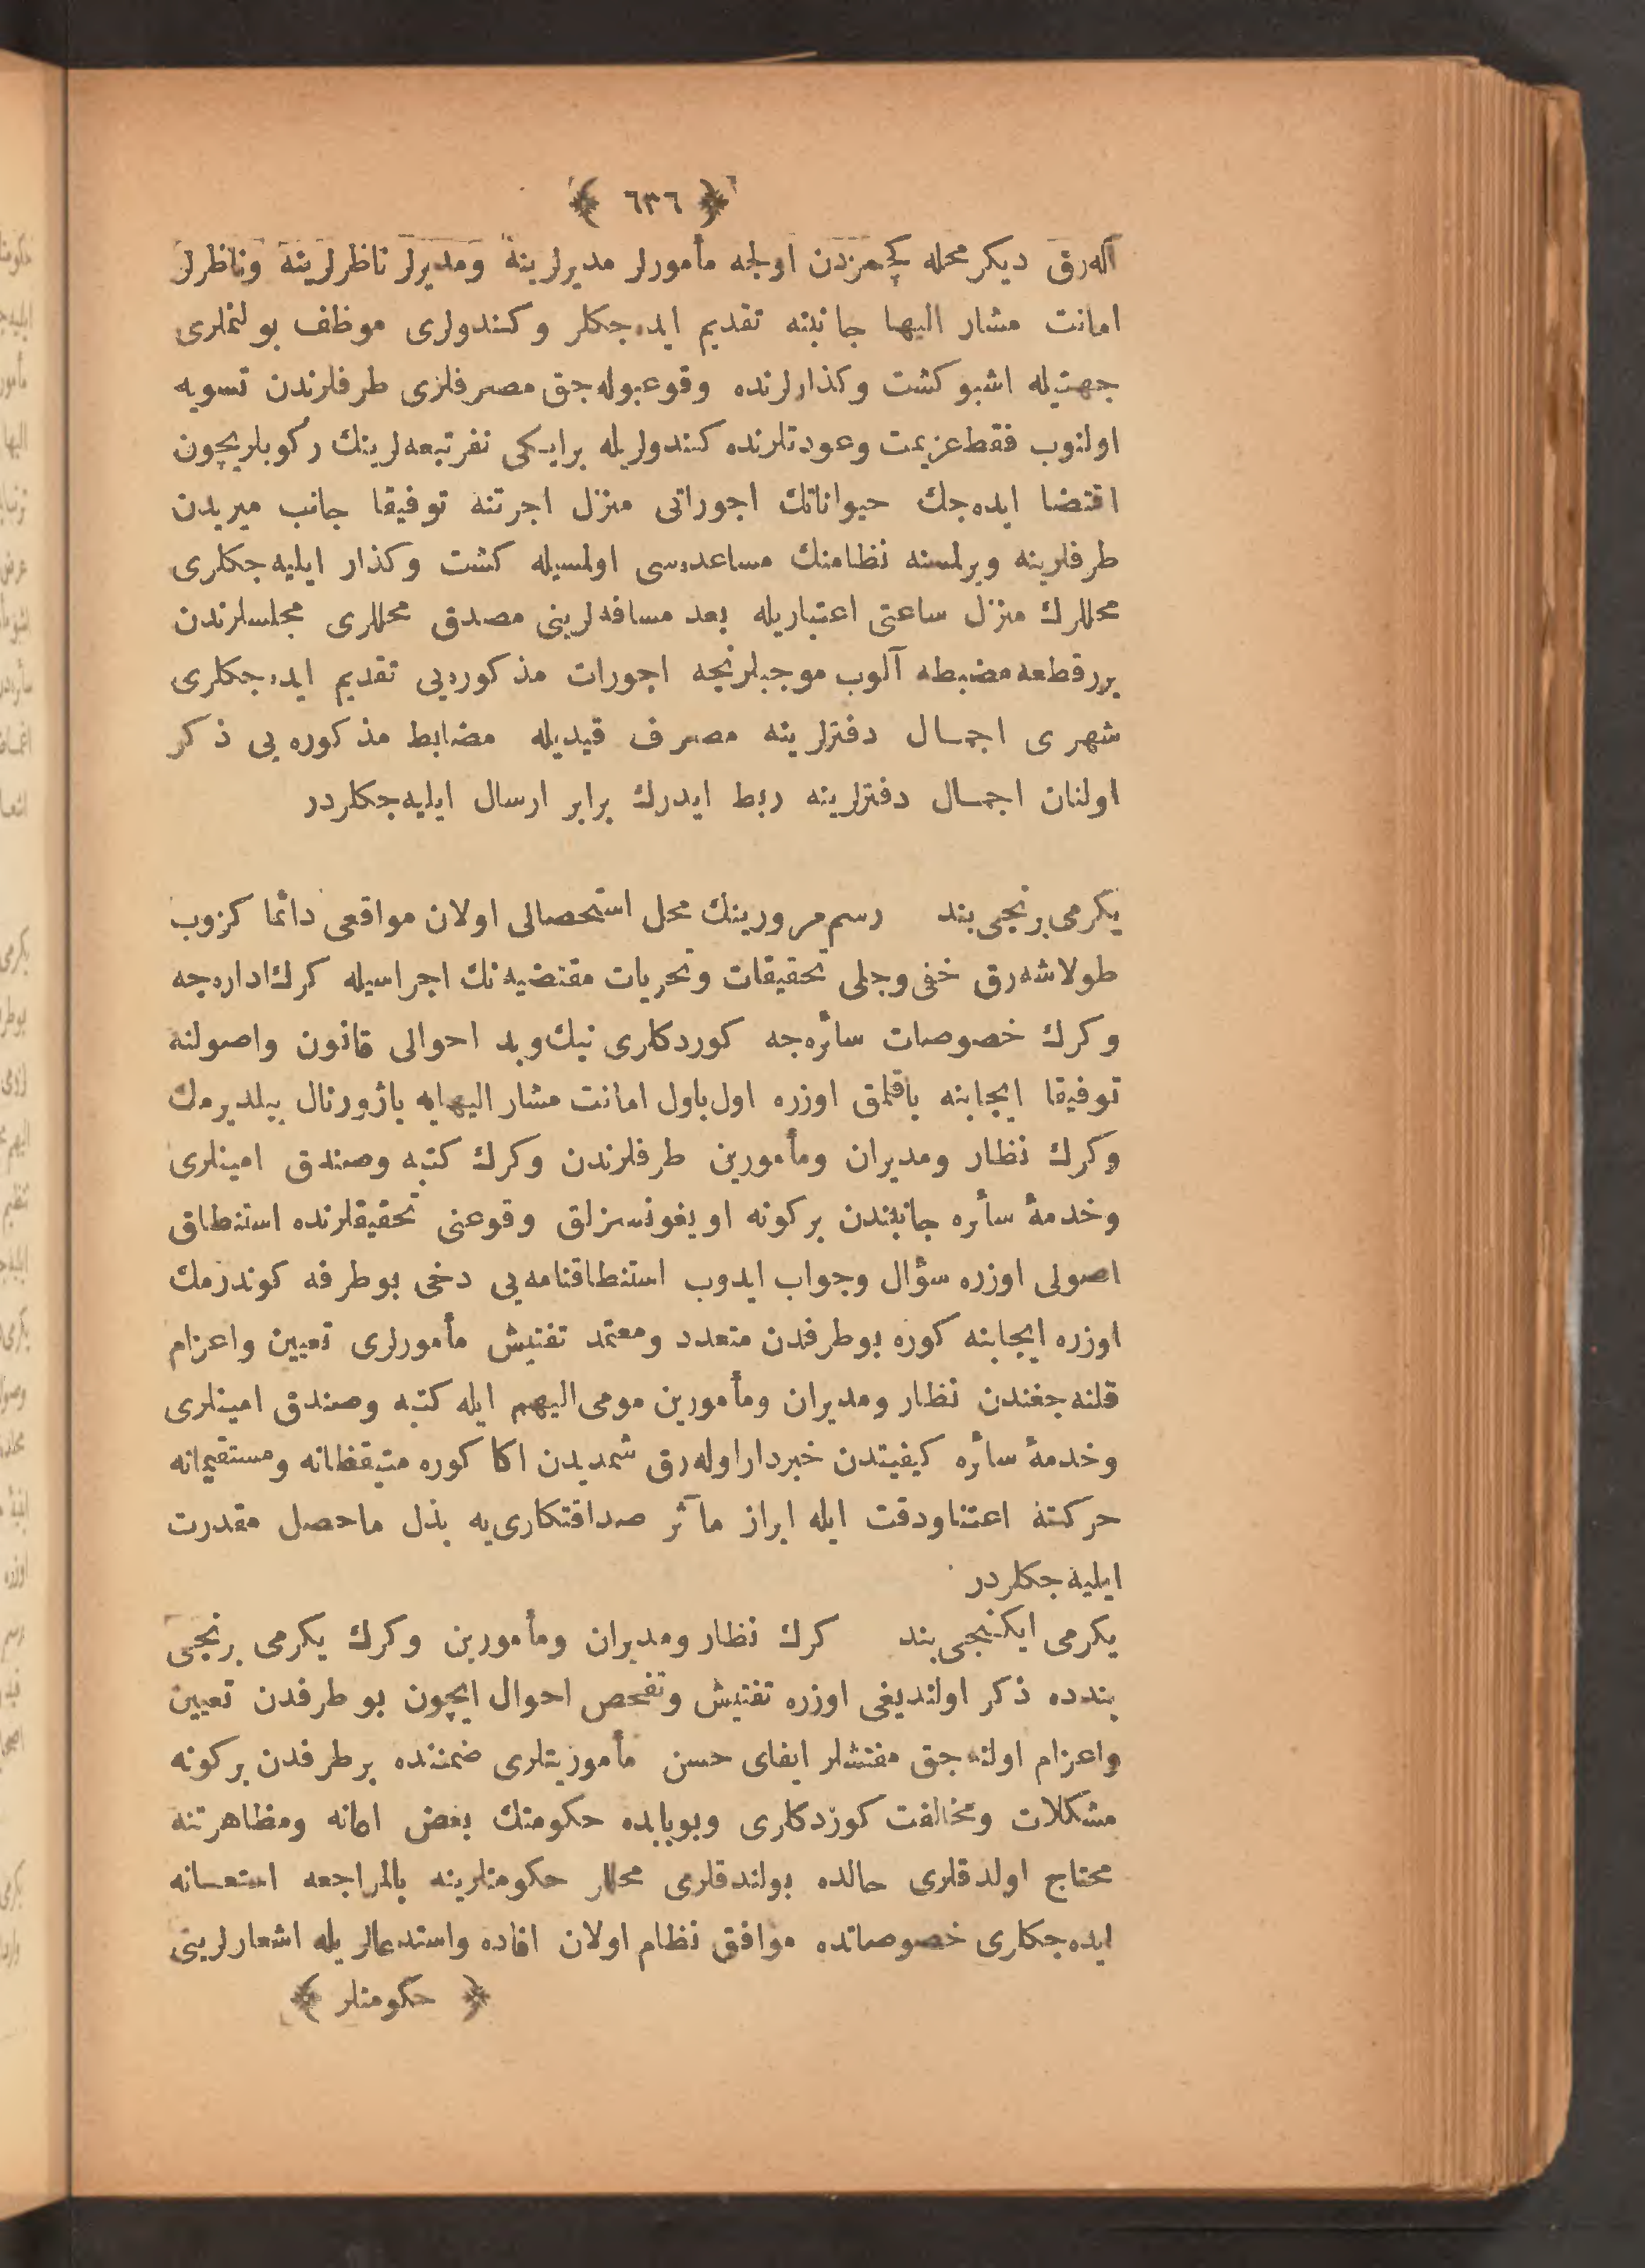 ﴿ ٦٣٦ ﴾
آله‌رق دیکر محله کچمزدن اولجه مأمورلر مدیرلرینه ومدیرلر ناظرلرینه وناظرلر
امانت مشار الیها جانبنه تقدیم ایده‌جکلر وکندولری موظف بولنملری
جهتیله اشبو کشت وکذارلرنده وقوعبوله‌جق مصرفلری طرفلرندن تسویه
اولنوب فقط عزیمت وعودتلرنده کندولریله برایکی نفر تبعه‌لرینك رکوبلریچون
اقتضا ایده‌جك حیواناتك اجوراتی منزل اجرتنه توفیقا جانب میریدن
طرفلرینه ویرلمسنه نظامنك مساعده‌سی اولمسیله کشت وکذار ایلیه‌جکلری
محللرك منزل ساعتی اعتباریله بعد مسافه‌لرینی مصدق محللری مجلسلرندن
بررقطعه مضبطه آلوب موجبلرنجه اجورات مذکوره‌یی تقدیم ایده‌جکلری
شهری اجمال دفترلرینه مصرف قیدیله مضابط مذکوره‌یی ذکر
اولنان اجمال دفترلرینه ربط ایدرك برابر ارسال ایلیه‌جکلردر
یکرمی برنجی بند رسم مرورینك محل استحصالی اولان مواقعی دائما کزوب
طولاشه‌رق خفی وجلی تحقیقات وتحریات مقتضیه‌نك اجراسیله کرك اداره‌جه
وکرك خصوصات سائره‌جه کوردکلری نیك وبد احوالی قانون واصولنه
توفیقا ایجابنه باقلمق اوزره اول‌باول امانت مشار الیهایه باژورنال بیلدیرمك
وکرك نظار ومدیران ومأمورین طرفلرندن وکرك کتبه وصندق امینلری
وخدمهٔ سائره جانبندن برکونه اویغونسزلق وقوعنی تحقیقلرنده استنطاق
اصولی اوزره سؤال وجواب ایدوب استنطاقنامه‌یی دخی بوطرفه کوندرمك
اوزره ایجابنه کوره بوطرفدن متعدد ومعتمد تفتیش مأمورلری تعیین واعزام
قلنه‌جغندن نظار ومدیران ومأمورین مومی‌الیهم ایله کتبه وصندق امینلری
وخدمهٔ سائره کیفیتدن خبردار اوله‌رق شمدیدن اکا کوره متیقظانه ومستقیمانه
حرکته اعتنا ودقت ایله ابراز مآثر صداقتکاری‌یه بذل ماحصل مقدرت
ایلیه‌جکلردر
یکرمی ایکنجی بند کرك نظار ومدیران ومأمورین وکرك یکرمی برنجی
بندده ذکر اولندیغی اوزره تفتیش وتفحص احوال ایچون بوطرفدن تعیین
واعزام اولنه‌جق مفتشلر ایفای حسن مأموریتلری ضمننده برطرفدن برکونه
مشکلات ومخالفت کوردکلری وبوبابده حکومتك بعض اعانه ومظاهرتنه
محتاج اولدقلری حالده بولندقلری محللر حکومتلرینه بالمراجعه استعانه
ایده‌جکلری خصوصاتده موافق نظام اولان افاده واستدعالریله اشعارلرینی
﴿ حکومتلر ﴾